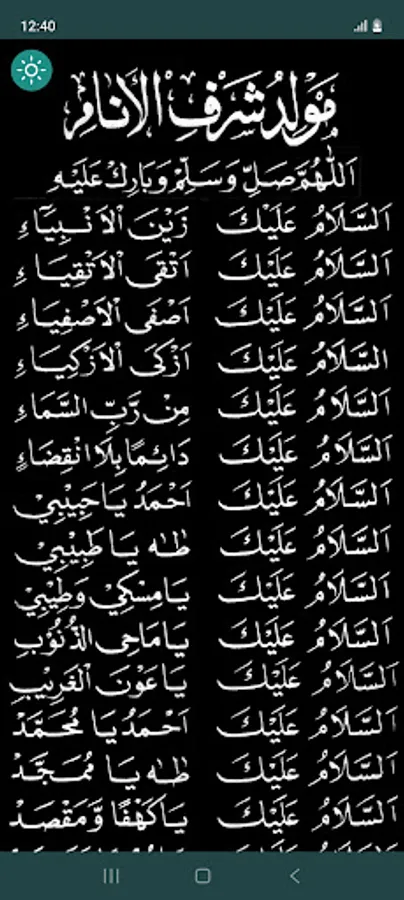 12:40
مَوْلِدُ شَرَفِ الْاَنَامِ
اَللّٰهُمَّ صَلِّ وَسَلِّمْ وَبَارِكْ عَلَيْهِ
اَلسَّلَامُ عَلَيْكَ زَيْنَ الْاَنْبِيَاءِ
اَلسَّلَامُ عَلَيْكَ اَتْقَى الْاَتْقِيَاءِ
اَلسَّلَامُ عَلَيْكَ اَصْفَى الْاَصْفِيَاءِ
اَلسَّلَامُ عَلَيْكَ اَزْكَى الْاَزْكِيَاءِ
اَلسَّلَامُ عَلَيْكَ مِنْ رَّبِّ السَّمَاءِ
اَلسَّلَامُ عَلَيْكَ دَائِمًا بِلَا انْقِضَاءٍ
اَلسَّلَامُ عَلَيْكَ اَحْمَدُ يَا حَبِيْبِيْ
اَلسَّلَامُ عَلَيْكَ طٰهٰ يَا طَبِيْبِيْ
اَلسَّلَامُ عَلَيْكَ يَا مِسْكِيْ وَطِيْبِيْ
اَلسَّلَامُ عَلَيْكَ يَا مَاحِى الذُّنُوْبِ
اَلسَّلَامُ عَلَيْكَ يَا عَوْنَ الْغَرِيْبِ
اَلسَّلَامُ عَلَيْكَ اَحْمَدُ يَا مُحَمَّدْ
اَلسَّلَامُ عَلَيْكَ طٰهٰ يَا مُمَجَّدْ
اَلسَّلَامُ عَلَيْكَ يَا كَهْفًا وَّمَقْصَدْ